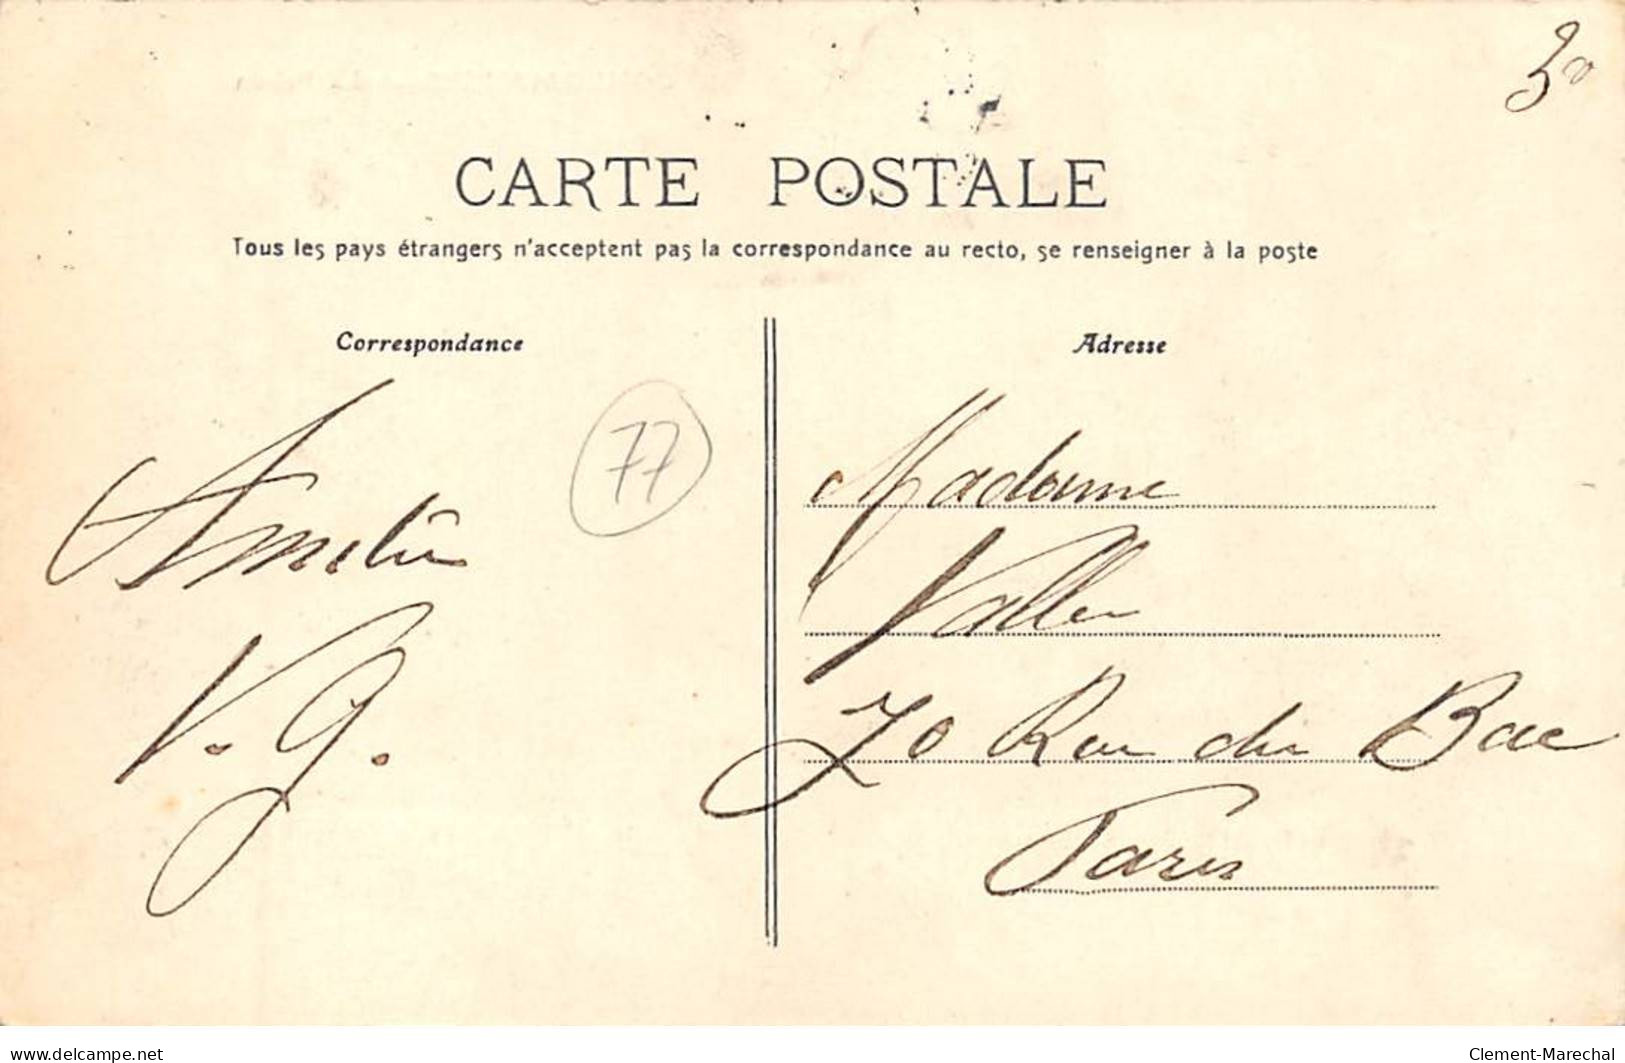 30
CARTE POSTALE
Tous les pays étrangers n'acceptent pas la correspondance au recto, se renseigner à la poste
Correspondance
Adresse
77
Amélie
V. G.
Madame
70 Rue du Bac
Paris
delcampe.net
Clement-Marechal